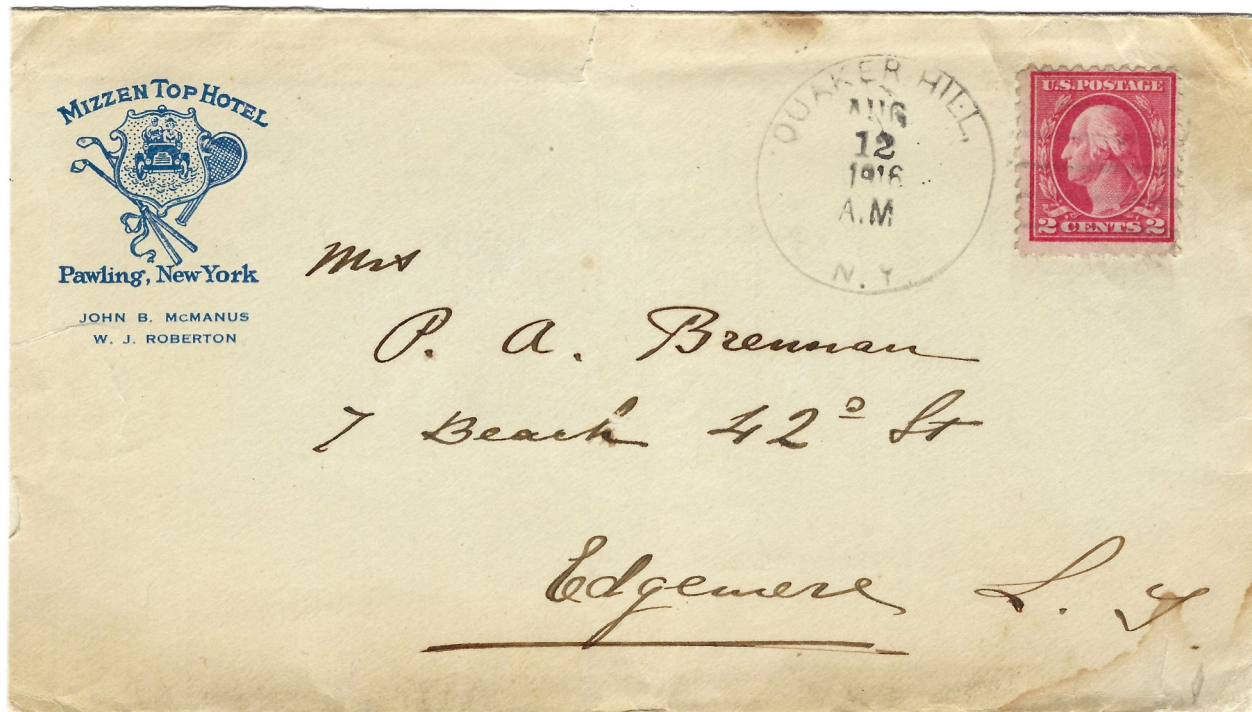 MIZZEN TOP HOTEL
Pawling, New York
JOHN B. McMANUS
W. J. ROBERTON
QUAKER HILL,
AUG
12
1916
A.M
N.Y.
U.S. POSTAGE
2 CENTS 2
Mrs
P. A. Brennan
7 Beach 42ᴰ St
Edgemere L. I.